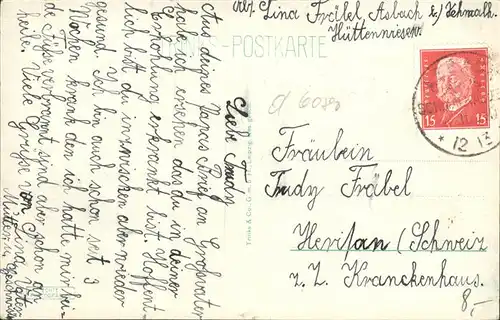 Abs. Lina Fräbel, Asbach b/Schmalk.
Hüttenwiesen
-POSTKARTE
Liebe Trudy
Aus deines Papas Brief an Großvater
habe ich ersehen das du in deiner
Erholung erkrankt bist. Hoffent-
lich bist du inzwischen aber wieder
gesund. Ich bin auch schon seit 3
Wochen krank den ich hatte mir bei-
de Füße verbrannt sind aber schon am
heilen. Viele Grüße von Lina, Vater
Mutter u. Geschwister
15 15
12 13
Fräulein
Trudy Fräbel
Herisau / Schweiz
z. Z. Kranckenhaus.
8,-